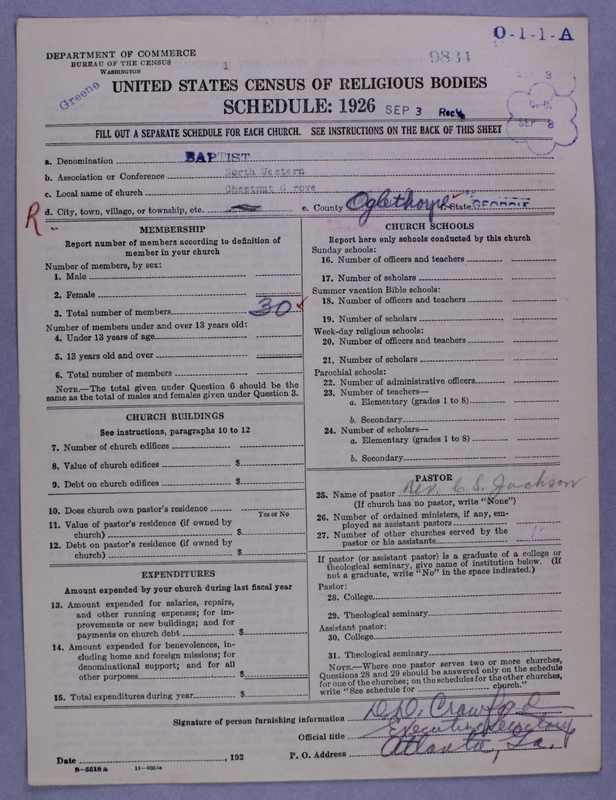 O-1-1-A
DEPARTMENT OF COMMERCE
BUREAU OF THE CENSUS
WASHINGTON
1
9834
Greene
UNITED STATES CENSUS OF RELIGIOUS BODIES
SCHEDULE: 1926
SEP 3 Rec'd
SEP 8
FILL OUT A SEPARATE SCHEDULE FOR EACH CHURCH. SEE INSTRUCTIONS ON THE BACK OF THIS SHEET
a. Denomination BAPTIST
b. Association or Conference North Western
c. Local name of church Chestnut Grove
d. City, town, village, or township, etc. e. County Oglethorpe f. State GEORGIA
R
MEMBERSHIP
Report number of members according to definition of
member in your church
Number of members, by sex:
1. Male
2. Female
3. Total number of members 30
Number of members under and over 13 years old:
4. Under 13 years of age
5. 13 years old and over
6. Total number of members
NOTE.—The total given under Question 6 should be the
same as the total of males and females given under Question 3.
CHURCH BUILDINGS
See instructions, paragraphs 10 to 12
7. Number of church edifices
8. Value of church edifices $
9. Debt on church edifices $
10. Does church own pastor's residence
Yes or No
11. Value of pastor's residence (if owned by
church) $
12. Debt on pastor's residence (if owned by
church) $
EXPENDITURES
Amount expended by your church during last fiscal year
13. Amount expended for salaries, repairs,
and other running expenses; for im-
provements or new buildings; and for
payments on church debt $
14. Amount expended for benevolences, in-
cluding home and foreign missions; for
denominational support; and for all
other purposes $
15. Total expenditures during year $
CHURCH SCHOOLS
Report here only schools conducted by this church
Sunday schools:
16. Number of officers and teachers
17. Number of scholars
Summer vacation Bible schools:
18. Number of officers and teachers
19. Number of scholars
Week-day religious schools:
20. Number of officers and teachers
21. Number of scholars
Parochial schools:
22. Number of administrative officers
23. Number of teachers—
a. Elementary (grades 1 to 8)
b. Secondary
24. Number of scholars—
a. Elementary (grades 1 to 8)
b. Secondary
PASTOR
25. Name of pastor Rev. C. S. Jackson
(If church has no pastor, write "None")
26. Number of ordained ministers, if any, em-
ployed as assistant pastors
27. Number of other churches served by the
pastor or his assistants
If pastor (or assistant pastor) is a graduate of a college or
theological seminary, give name of institution below. (If
not a graduate, write "No" in the space indicated.)
Pastor:
28. College
29. Theological seminary
Assistant pastor:
30. College
31. Theological seminary
NOTE.—Where one pastor serves two or more churches,
Questions 28 and 29 should be answered only on the schedule
for one of the churches; on the schedules for the other churches,
write "See schedule for church."
Signature of person furnishing information D. D. Crawford
Official title Executive Secretary
Date , 192 P. O. Address Atlanta, Ga.
8—5518a 11—9551a